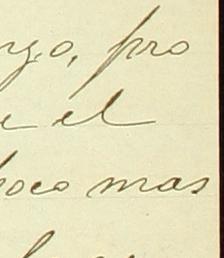 ngo, pro
e el
poco mas